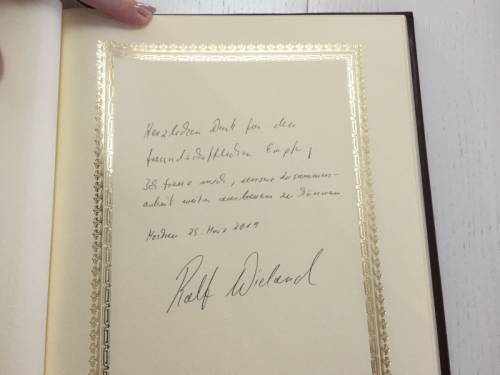 Herzlichen Dank für den
freundschaftlichen Empf
Ich freue mich, unsere Zusammen-
arbeit weiter ausbauen zu können
25. März 2019
Ralf Wieland